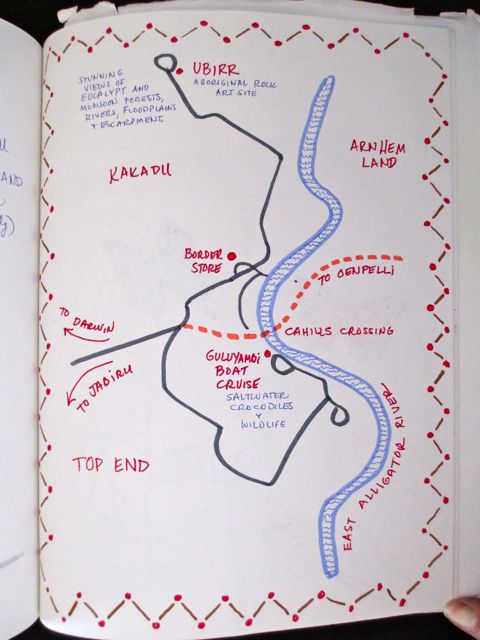 UBIRR
ABORIGINAL ROCK
ART SITE
STUNNING
VIEWS OF
EUCALYPT AND
MONSOON FORESTS,
RIVERS, FLOODPLAINS
& ESCARPMENT.
ARNHEM
LAND
KAKADU
AND
BORDER
STORE
TO OENPELLI
TO DARWIN
CAHILLS CROSSING
TO JABIRU
GULUYAMBI
BOAT
CRUISE
SALTWATER
CROCODILES
&
WILDLIFE
TOP END
EAST ALLIGATOR RIVER